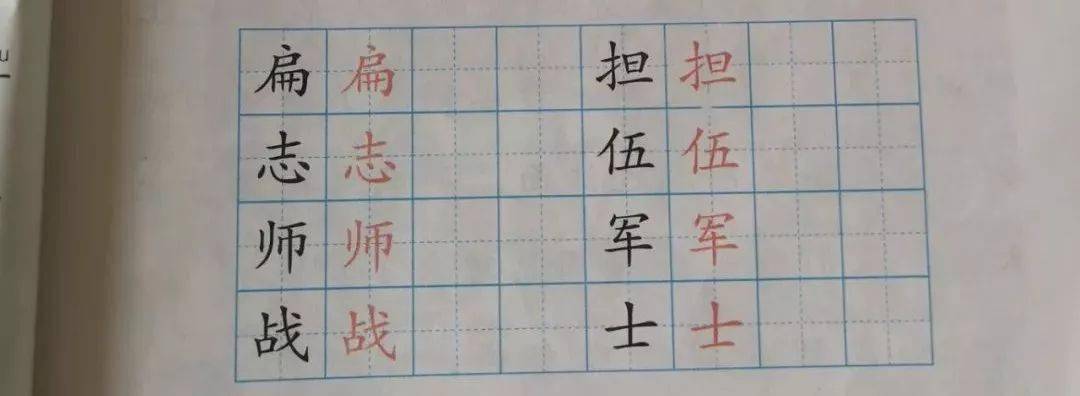 u
扁 扁 担 担
志 志 伍 伍
师 师 军 军
战 战 士 士